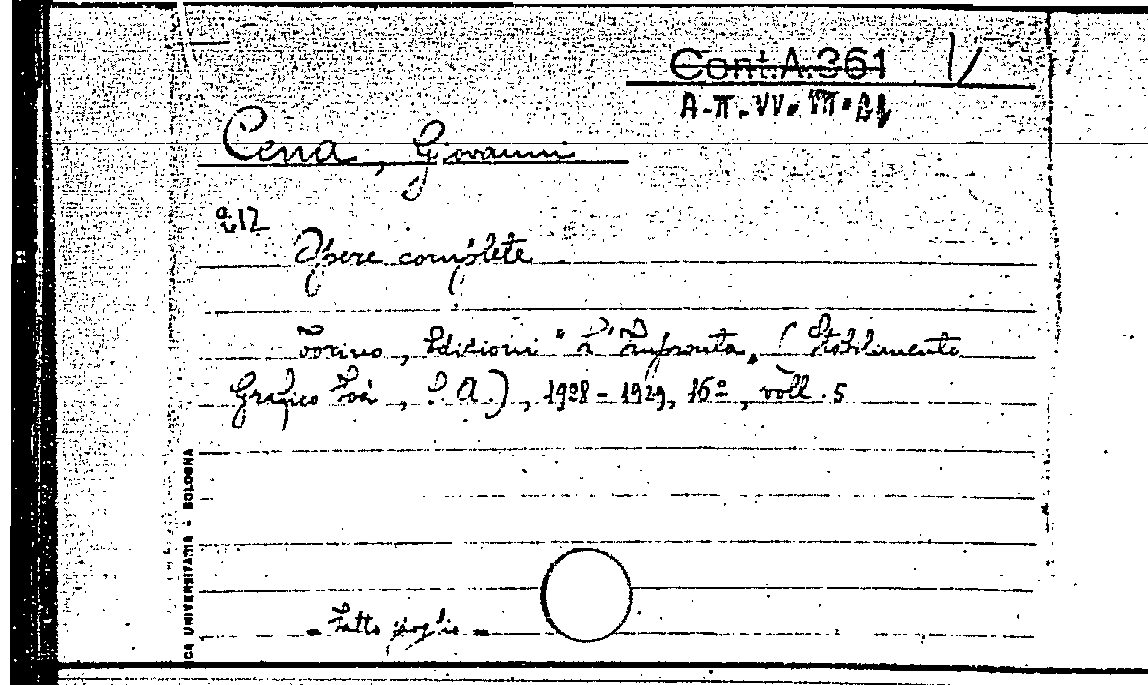 Cont.A.361 V
A-II-VV-VII-21
Cena, Giovanni
Opere complete
Torino, Edizioni "L'Impronta„ (Stabilimento
Grafico Foà, S.A.), 1928-1929, 16º, voll. 5
CA UNIVERSITARIA - BOLOGNA
- Fatto spoglio -